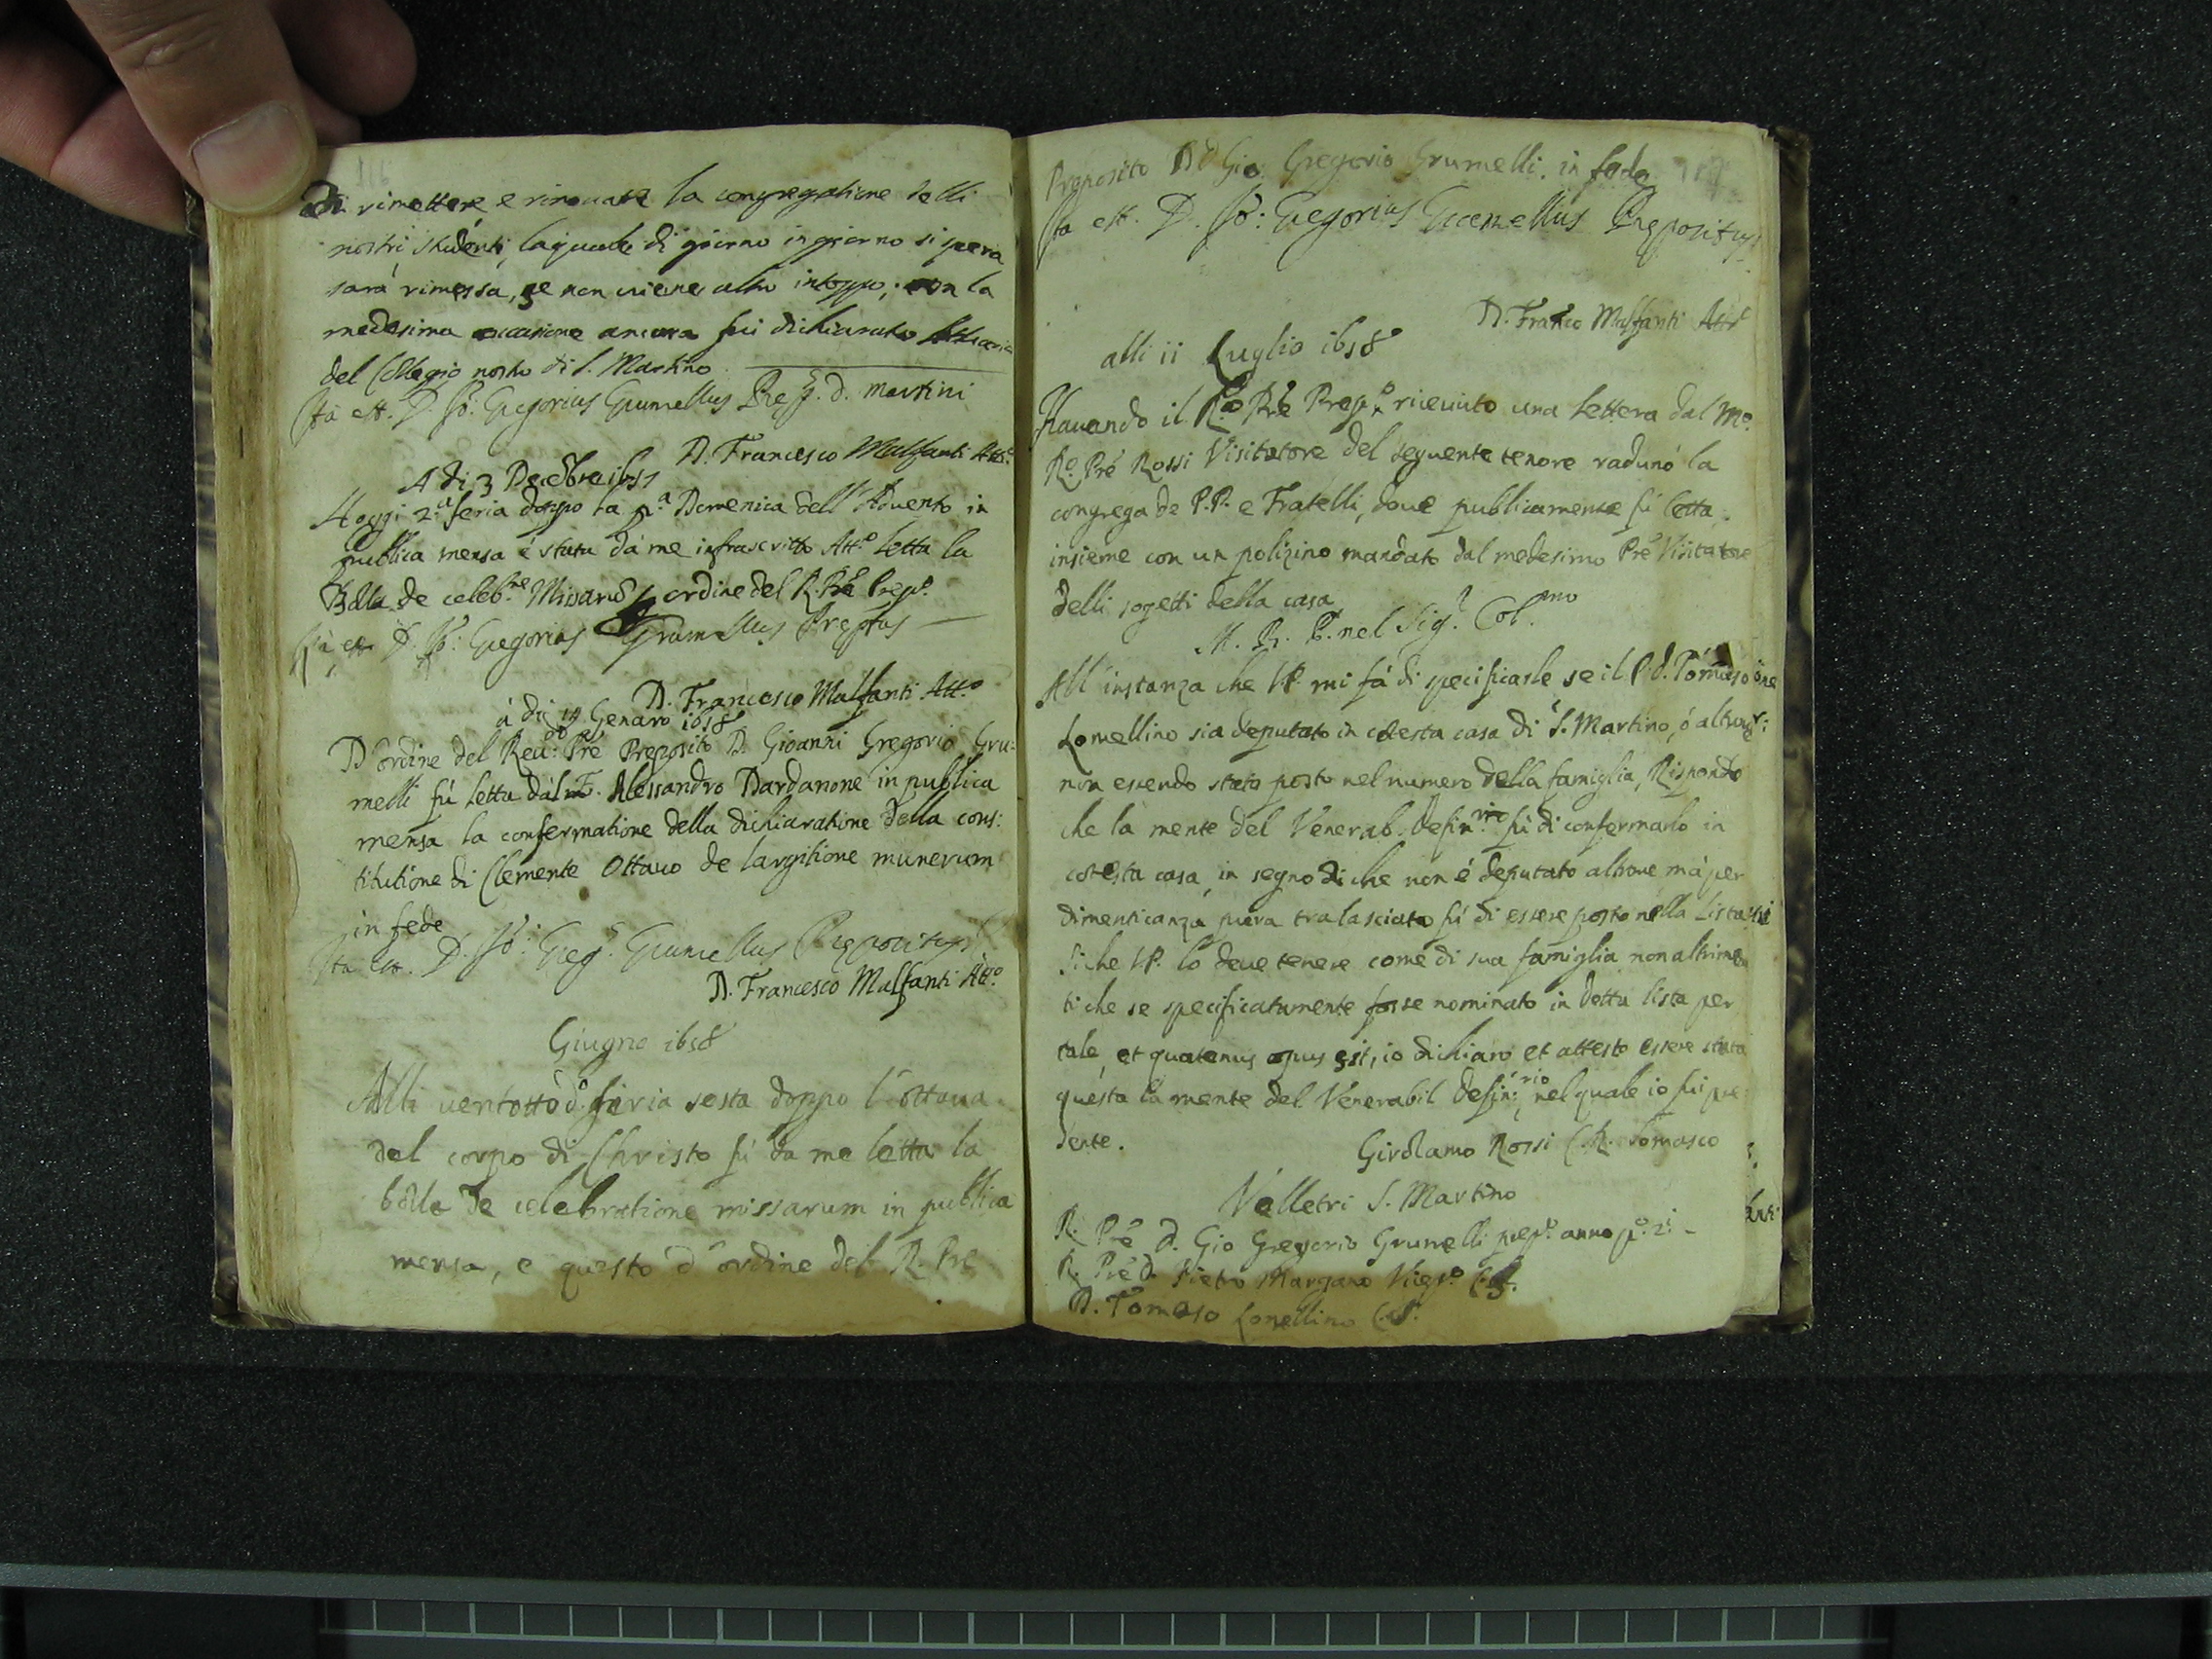 116
di rimettere e rinouare la congregatione delli
nostri studenti, la quale di giorno in giorno si spera
sarà rimessa, se non uiene altro intoppo; con la
medesima occasione ancora fu dichiarato
del Collegio nostro di S. Martino
Ita est. D. Jo: Gregorius Grumellus Prep. S. Martini
D. Francesco Malfanti Att.o
A di 3 Decebre 1657
Hoggi 2.a feria doppo la p.a Domenica dell' Aduento in
publica mensa é stata dà me infrascritto Att.o letta la
Bolla de celeb.ne Missarũ ordine del R. Prê Prep.o
Ita est D. Jo: Gregorius Grumellus Preptus
D. Francesco Malfanti Att.o
à di 19 Genaro 1658
D'ordine del Reu: Pré Preposito D. Gioanni Gregorio Gru:
melli fú letta dal F. Alessandro Dardanone in publica
mensa la confermatione della dichiaratione della cons:
titutione di Clemente Ottauo de largitione munerum
in fede
Ita est. D. Jo: Greg.s Grumellus Prepositus
D. Francesco Malfanti Att.o
Giugno 1658
Alli uentotto d.o feria sesta doppo l'ottaua
del corpo di Christo fú da me letta la
bolla de celebratione missarum in publica
mensa, e questo d'ordine del R. Pre
Preposito D Gio: Gregorio Grumelli. in fede
117
Ita est. D. Jo: Gregorius Grumellus Prepositus
D. Franco Malfanti Att.o
alli ii Luglio 1658
Hauendo il R.o Prê Prep.o riceuuto una lettera dal M.o
R.o Pré Rossi Visitatore del seguente tenore radunò la
congrega de P.P. e Fratelli, doue publicamente fú letta,
insieme con un polizino mandato dal medesimo Pré Visitatore
delli sogetti della casa
M. R. P. nel Sig.r Col.mo
All' instanza che VP. mi fá di specificarle se il P. d. Tomaso
Lomellino sia deputato in cotesta casa di S. Martino, ó altroue:
non essendo stato posto nel numero della famiglia, Rispondo
che la mente del Venerab. Defin.rio fú di confermarlo in
cotesta casa, in segno di che non é deputato altroue mà per
dimenticanza pura tralasciato fú di essere posto nella Lista:
Siche VP. lo deue tenere come di sua famiglia non altrimen
ti che se specificatamente fosse nominato in detta lista per
tale, et quatenus opus sit, io dichiaro et attesto essere stata
questa la mente del Venerabil Defin:rio, nel quale io fui pre
dente.
Girolamo Rossi C. R. Somasco
Velletri S. Martino
R. Pré D. Gio Gregorio Grumelli prep.o anno p.o 2i -
R. Pré D. Pietro Margano Vicep.o
D. Tomaso Lomellino